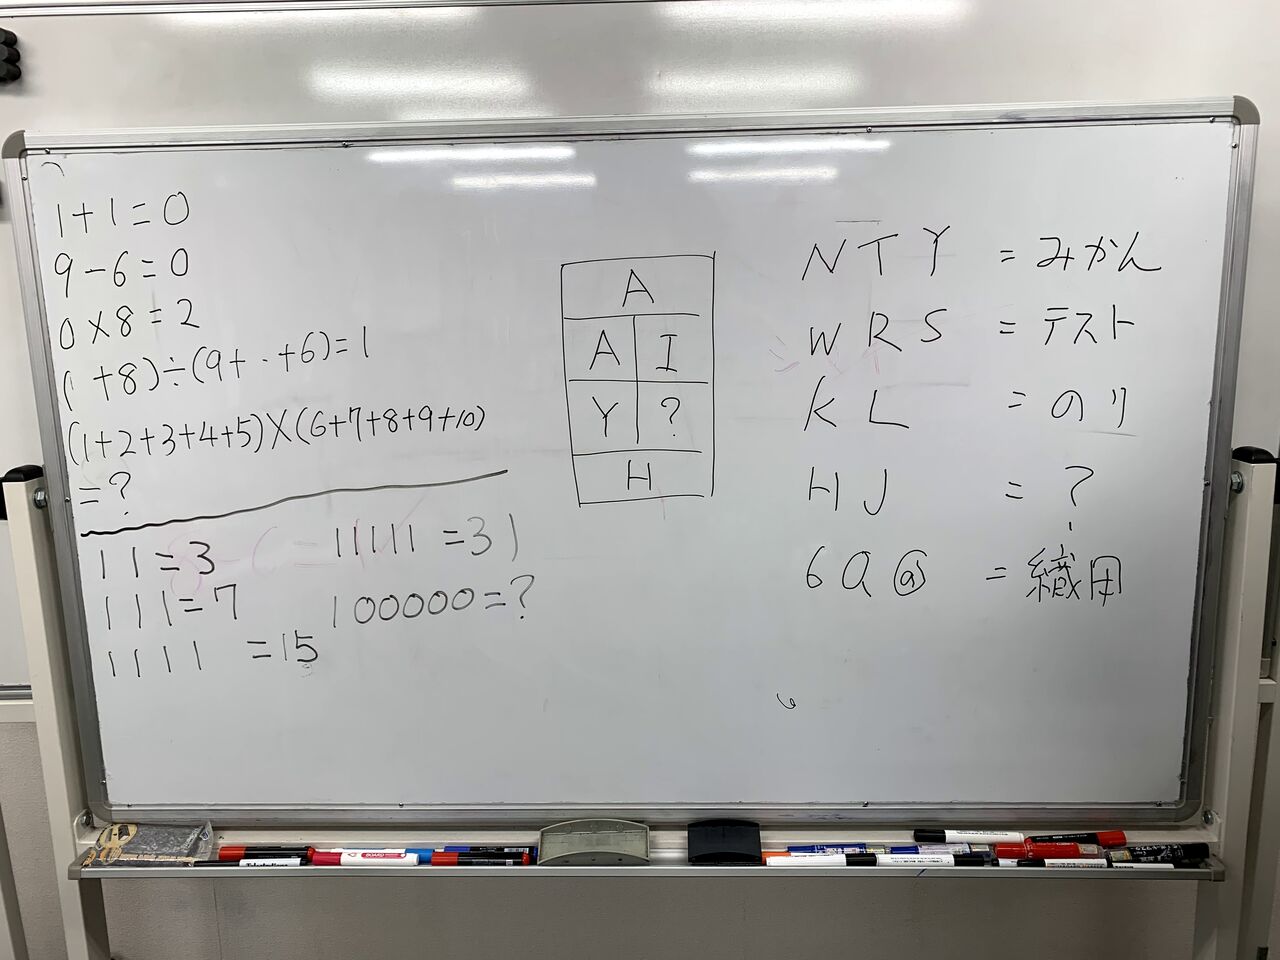 1+1=0
9-6=0
0×8=2
(1+8)÷(9+・+6)=1
(1+2+3+4+5)×(6+7+8+9+10)
=?
11=3
111=7
1111=15
11111=31
100000=?
A
A I
Y ?
H
NTY=みかん
WRS=テスト
KL=のり
HJ=?
6Q@=織田